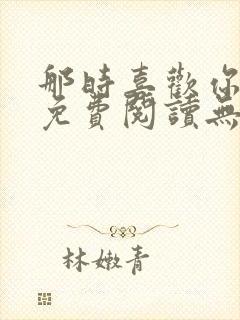 那時喜歡你
免費閱讀無
林嫩青